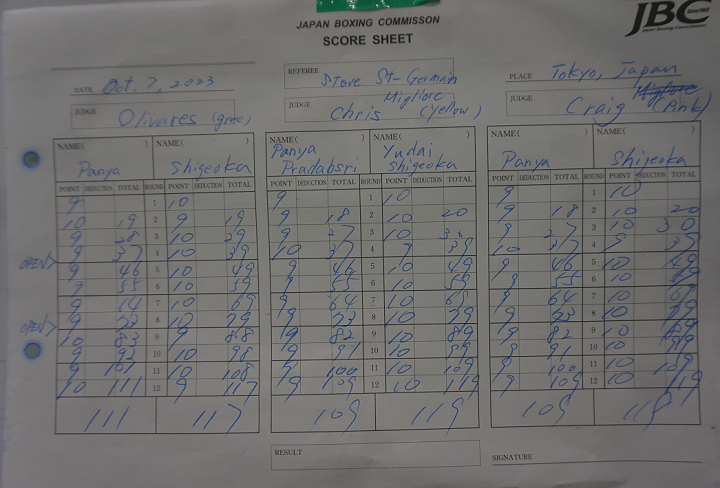 JAPAN BOXING COMMISSON
SCORE SHEET
JBC
DATE Oct. 7, 2023
REFEREE Steve St-Germain
PLACE Tokyo, Japan
JUDGE Olivares
JUDGE Chris Migliore (Yellow)
JUDGE Craig (Pink)
NAME( ) NAME( ) NAME( ) NAME( ) NAME( ) NAME( )
Panya Shigeoka Panya Pradabsri Yudai Shigeoka Panya Shigeoka
POINT DEDUCTION TOTAL ROUND POINT DEDUCTION TOTAL POINT DEDUCTION TOTAL ROUND POINT DEDUCTION TOTAL POINT DEDUCTION TOTAL ROUND POINT DEDUCTION TOTAL
9 1 10 9 1 10 9 1 10
10 19 2 9 19 9 18 2 10 20 9 18 2 10 20
9 28 3 10 29 9 27 3 10 9 27 3 10 30
OPEN> 9 37 4 10 39 10 37 4 9 39 10 37 4 9 39
9 46 5 10 49 9 46 5 10 49 9 46 5 10 49
9 55 6 10 59 9 55 6 10 59 9 55 6 10 59
9 7 10 69 9 64 7 10 69 9 64 7 10 69
OPEN> 9 8 10 79 9 73 8 10 79 9 73 8 10 79
10 83 9 9 88 9 82 9 10 89 9 82 9 10 89
9 92 10 10 98 9 91 10 10 9 91 10 10
9 101 11 10 108 9 100 11 10 109 9 100 11 10 109
10 111 12 9 117 9 109 12 10 119 9 109 12 10 119
111 117 109 119 109
RESULT
SIGNATURE